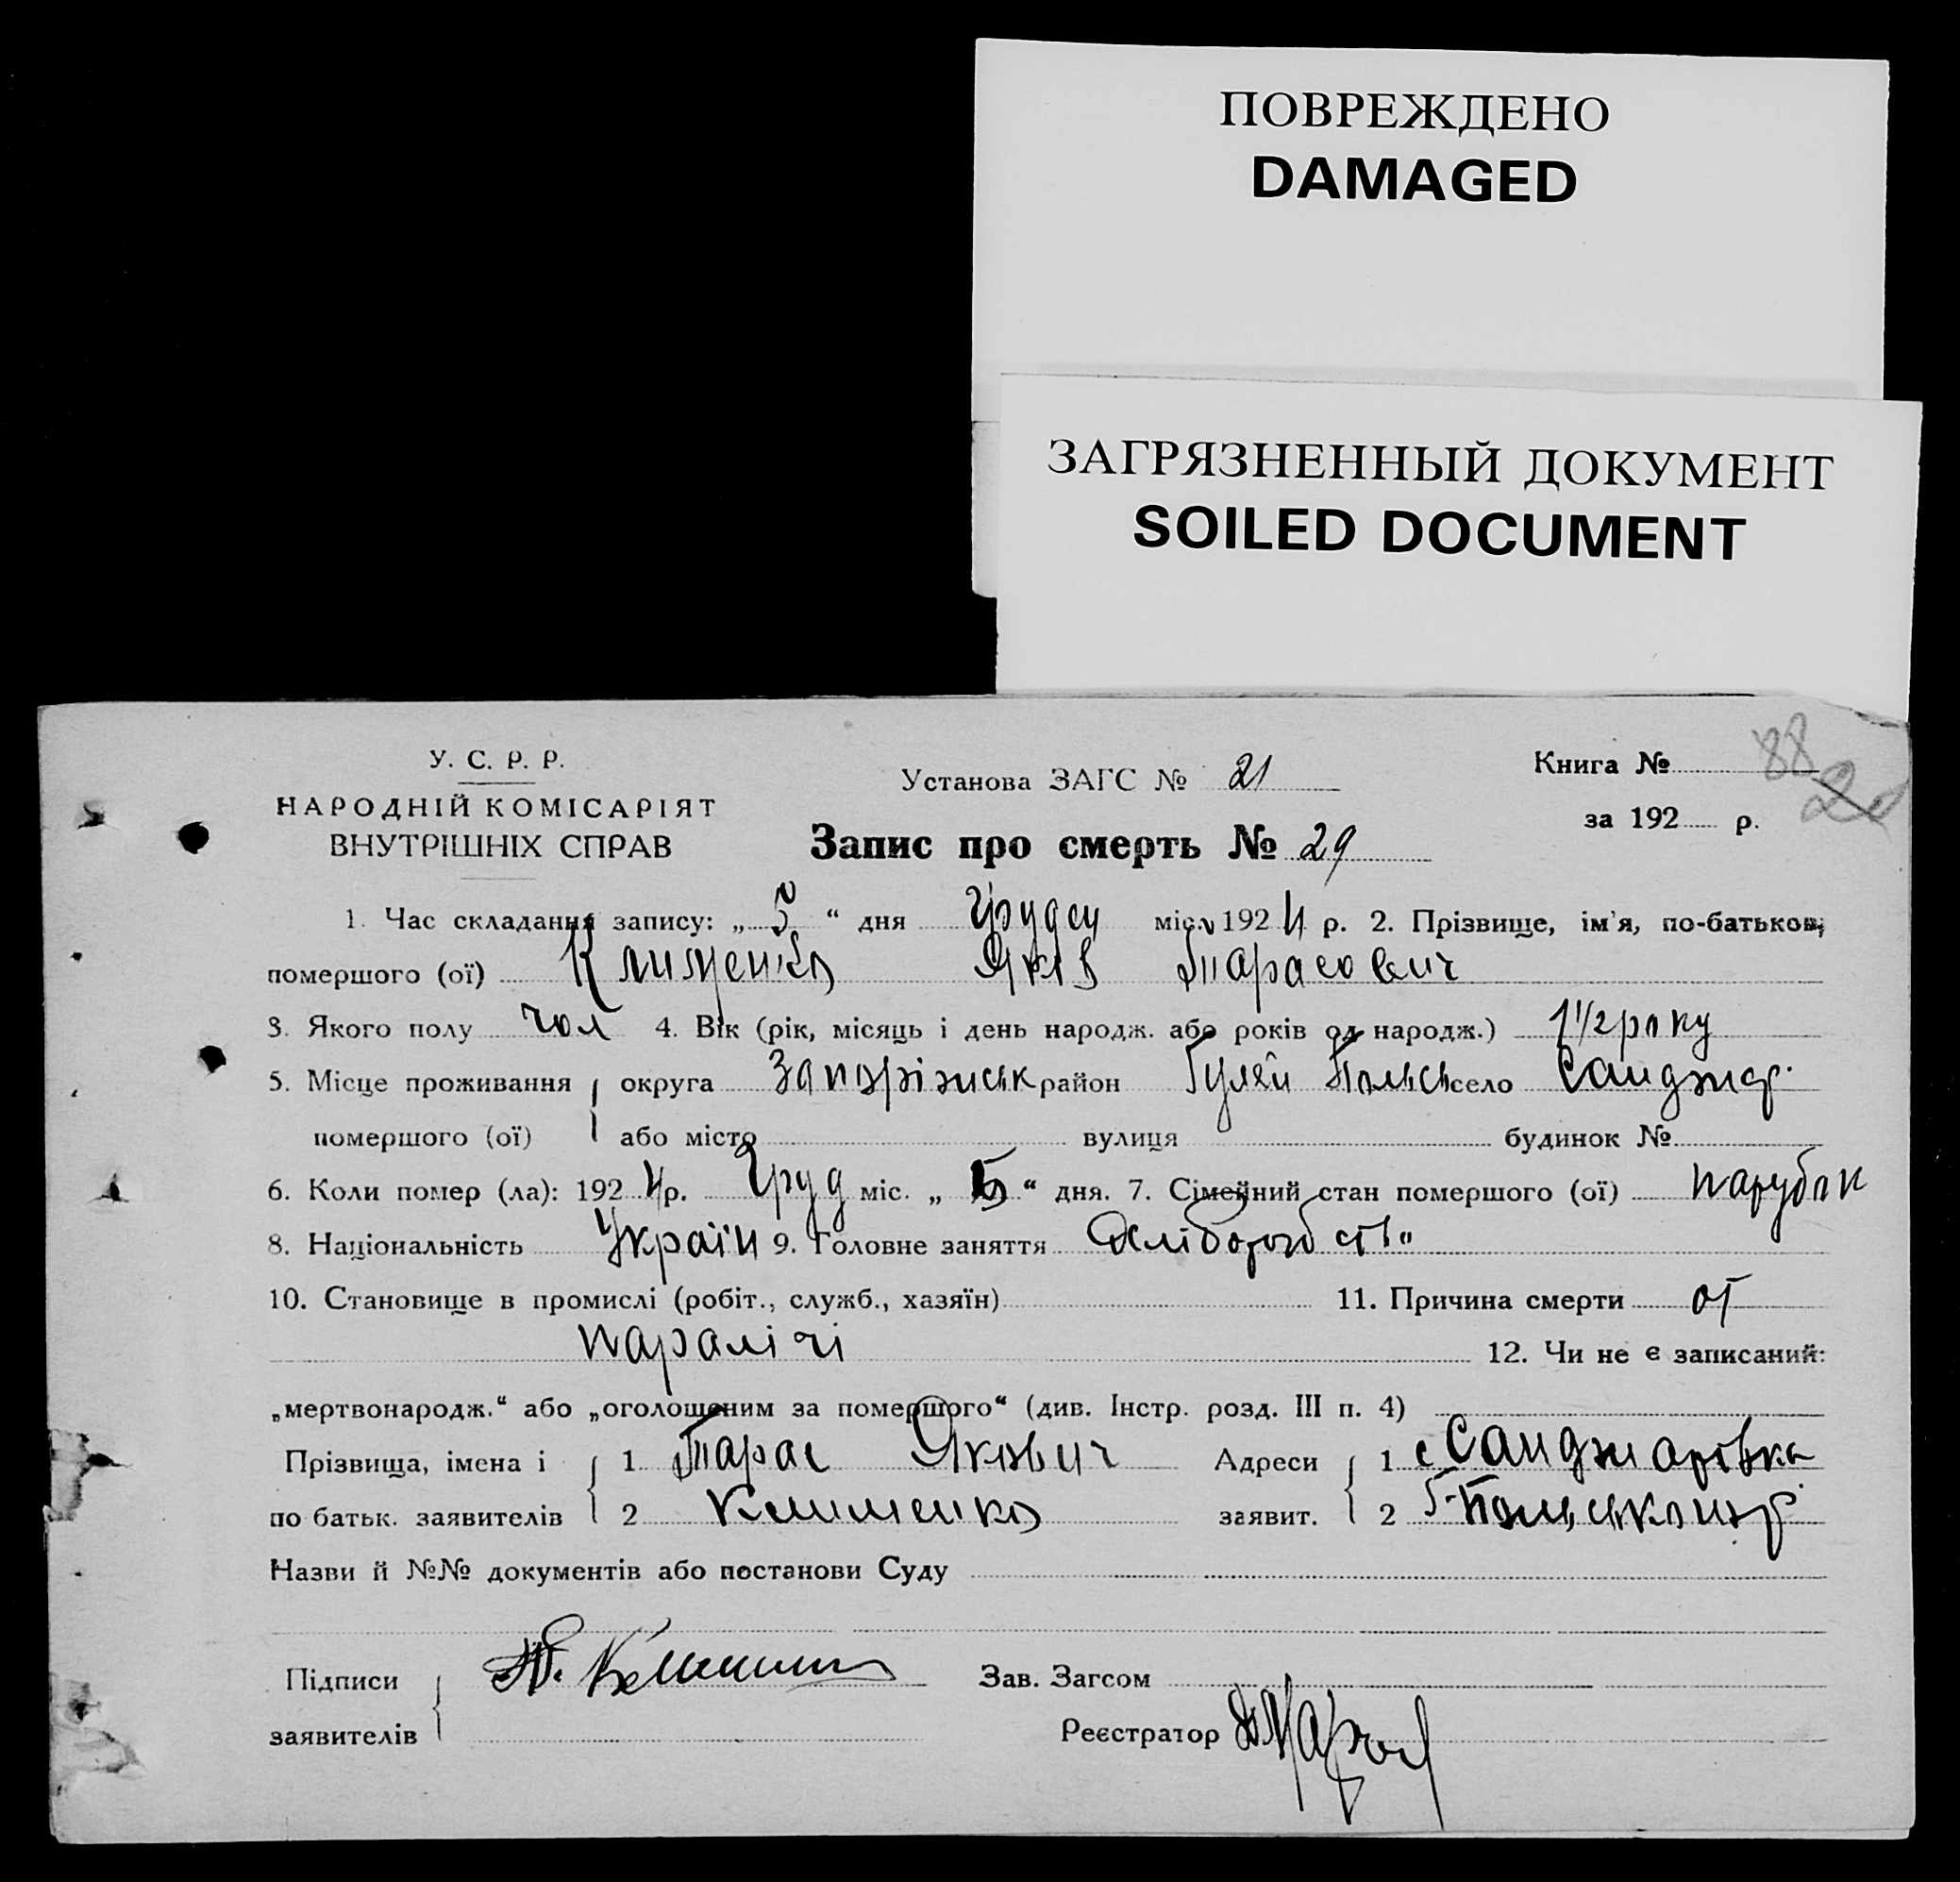 ПОВРЕЖДЕНО
DAMAGED
ЗАГРЯЗНЕННЫЙ ДОКУМЕНТ
SOILED DOCUMENT
У. С. Р. Р.
НАРОДНІЙ КОМІСАРІЯТ
ВНУТРІШНІХ СПРАВ
Установа ЗАГС № 21
Запис про смерть № 29
Книга № 88
за 192 р.
1. Час складання запису: „ 5 “ дня Грудсц міс. 192 4 р. 2. Прізвище, ім'я, по-батькові,
помершого (ої) Клименко Яків Тарасович
3. Якого полу чол 4. Вік (рік, місяць і день народж. або років од народж.) 1 1/2 року
5. Місце проживання округа Запоріжськ район Гуляй Польсь село Санджар.
помершого (ої) або місто вулиця будинок №
6. Коли помер (ла): 192 4 р. Груд міс. „ 5 “ дня. 7. Сімейний стан помершого (ої) парубок
8. Національність Україн 9. Головне заняття Хліборобств
10. Становище в промислі (робіт., служб., хазяїн) 11. Причина смерти от
паралічі 12. Чи не є записаний:
„мертвонародж.“ або „оголошеним за помершого“ (див. Інстр. розд. III п. 4)
Прізвища, імена і 1 Тарас Якович Адреси 1 с Санджарівка
по батьк. заявителів 2 Клименко заявит. 2 Г-Польськ
Назви й №№ документів або постанови Суду
Підписи Зав. Загсом
заявителів Реєстратор